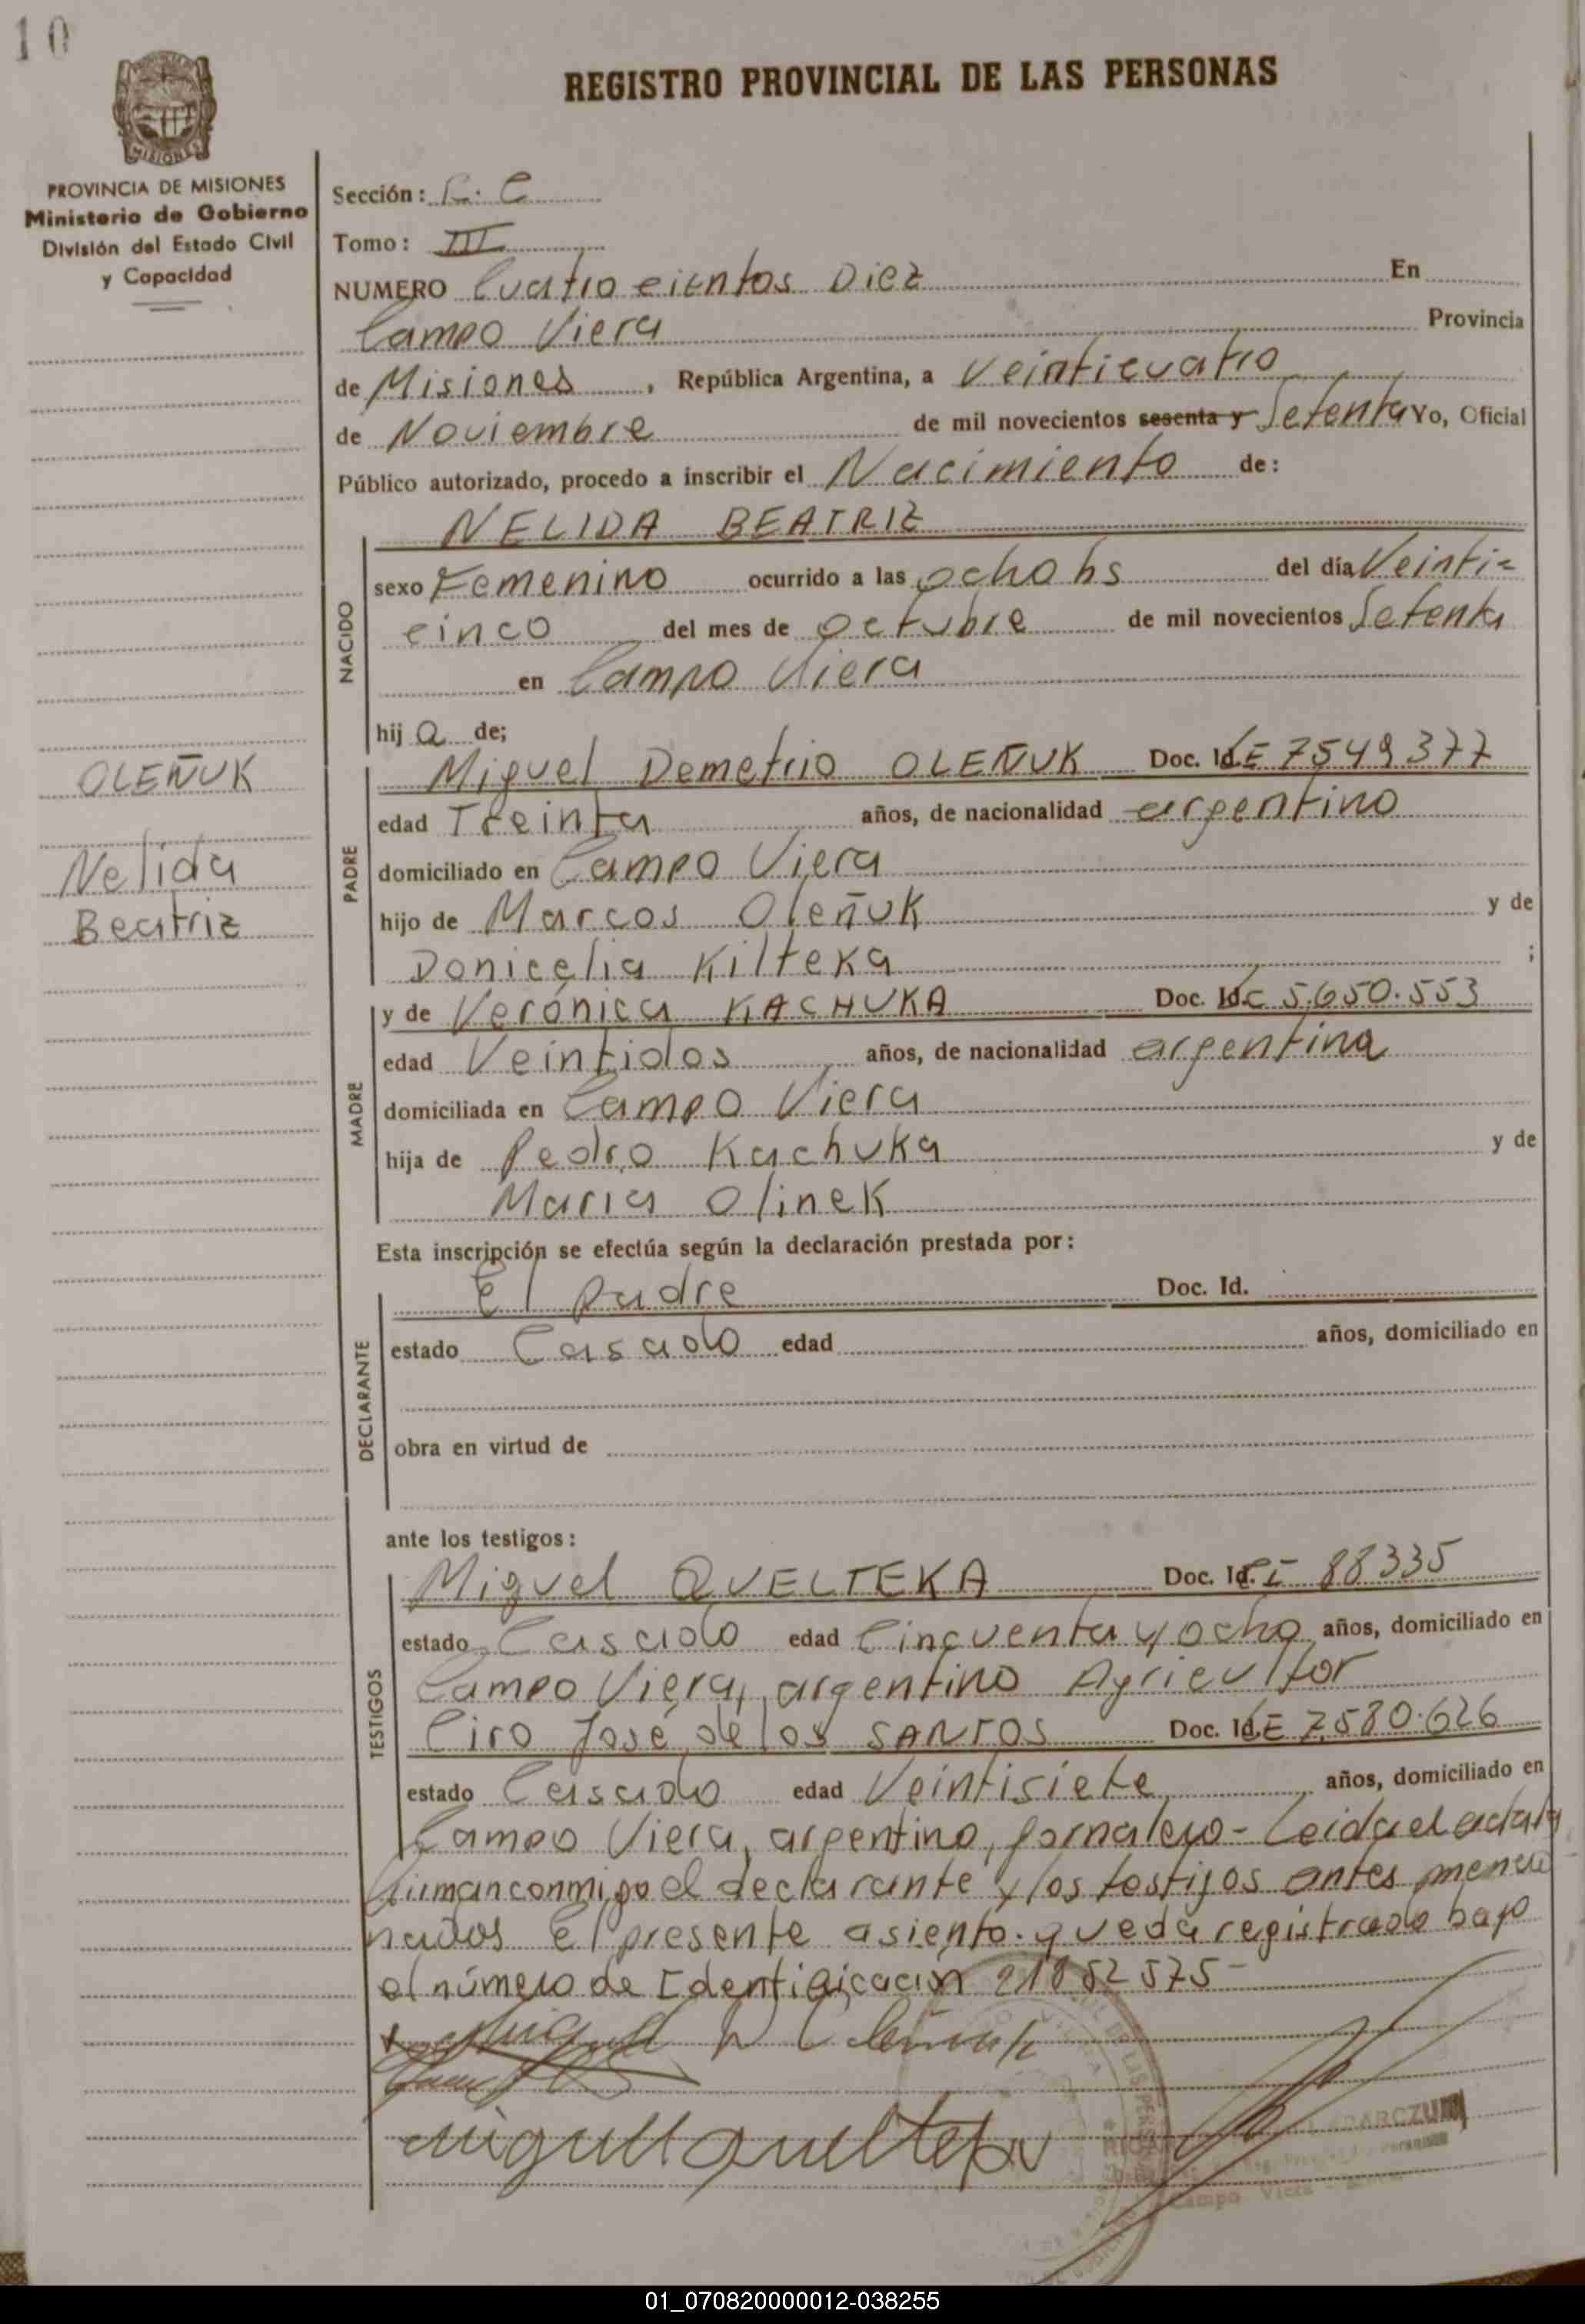 10
REGISTRO PROVINCIAL DE LAS PERSONAS
MISIONES
PROVINCIA DE MISIONES
Ministerio de Gobierno
División del Estado Civil
y Capacidad
Sección: C
Tomo: III
NUMERO Cuatro cientos Diez En
Campo Viera Provincia
de Misiones, República Argentina, a Veinticuatro
de Noviembre de mil novecientos sesenta y Setenta Yo, Oficial
Público autorizado, procedo a inscribir el Nacimiento de:
NELIDA BEATRIZ
NACIDO
sexo Femenino ocurrido a las ocho hs del día Veinti=
cinco del mes de octubre de mil novecientos Setenta
en Campo Viera
hij a de;
OLEÑUK
Nelida
Beatriz
PADRE
Miguel Demetrio OLEÑUK Doc. Id. LE 7549377
edad Treinta años, de nacionalidad argentino
domiciliado en Campo Viera
hijo de Marcos Oleñuk y de
Donicelia Kilteka ;
MADRE
y de Verónica KACHUKA Doc. Id. LC 5.650.553
edad Veintidos años, de nacionalidad argentina
domiciliada en Campo Viera
hija de Pedro Kachuka y de
Maria Olinek
Esta inscripción se efectúa según la declaración prestada por:
DECLARANTE
El padre Doc. Id.
estado Casado edad años, domiciliado en
obra en virtud de
ante los testigos:
TESTIGOS
Miguel QUELTEKA Doc. Id. CI 88335
estado Casado edad Cincuenta y ocho años, domiciliado en
Campo Viera, argentino Agricultor
Ciro José de los SANTOS Doc. Id. LE 7.580.626
estado Casado edad Veintisiete años, domiciliado en
Campo Viera, argentino, jornalero - Leida el acta la
firman conmigo el declarante y los testigos antes mencio
nados El presente asiento. queda registrado bajo
el número de Identificacion 21852575-
Miguel Quelteka
Campo Viera
01_070820000012-038255